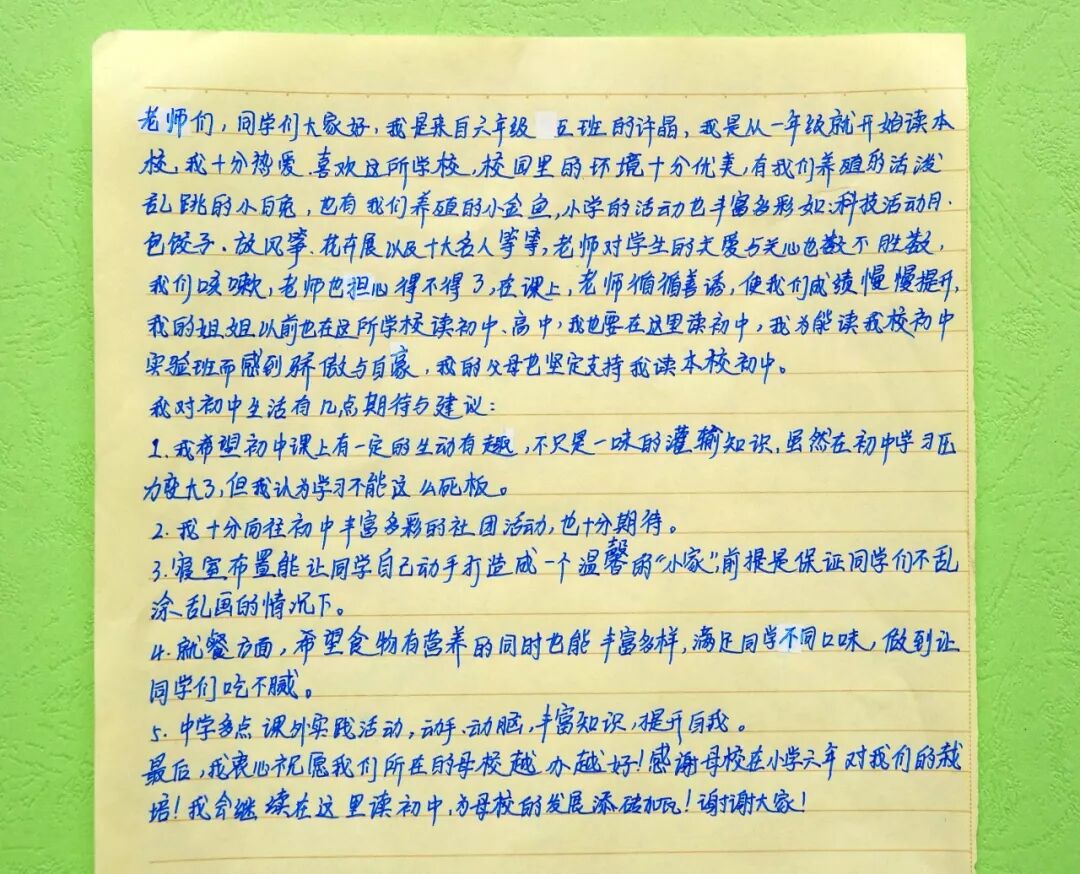 老师们，同学们大家好，我是来自六年级 五班的许晶，我是从一年级就开始读本
校，我十分热爱、喜欢这所学校，校园里的环境十分优美，有我们养殖的活泼
乱跳的小白兔，也有我们养殖的小金鱼，小学的活动也丰富多彩如：科技活动月、
包饺子、放风筝、花卉展以及十大名人等等，老师对学生的关爱与关心也数不胜数，
我们咳嗽，老师也担心得不得了，在课上，老师循循善诱，使我们成绩慢慢提升，
我的姐姐以前也在这所学校读初中、高中，我也要在这里读初中，我为能读我校初中
实验班而感到骄傲与自豪，我的父母也坚定支持我读本校初中。
我对初中生活有几点期待与建议：
1.我希望初中课上有一定的生动有趣，不只是一味的灌输知识，虽然在初中学习压
力变大了，但我认为学习不能这么死板。
2.我十分向往初中丰富多彩的社团活动，也十分期待。
3.寝室布置能让同学自己动手打造成一个温馨的“小家”，前提是保证同学们不乱
涂、乱画的情况下。
4.就餐方面，希望食物有营养的同时也能丰富多样，满足同学不同口味，做到让
同学们吃不腻。
5.中学多点课外实践活动，动手、动脑，丰富知识，提升自我。
最后，我衷心祝愿我们所在的母校越办越好！感谢母校在小学六年对我们的栽
培！我会继续在这里读初中，为母校的发展添砖加瓦！谢谢大家！